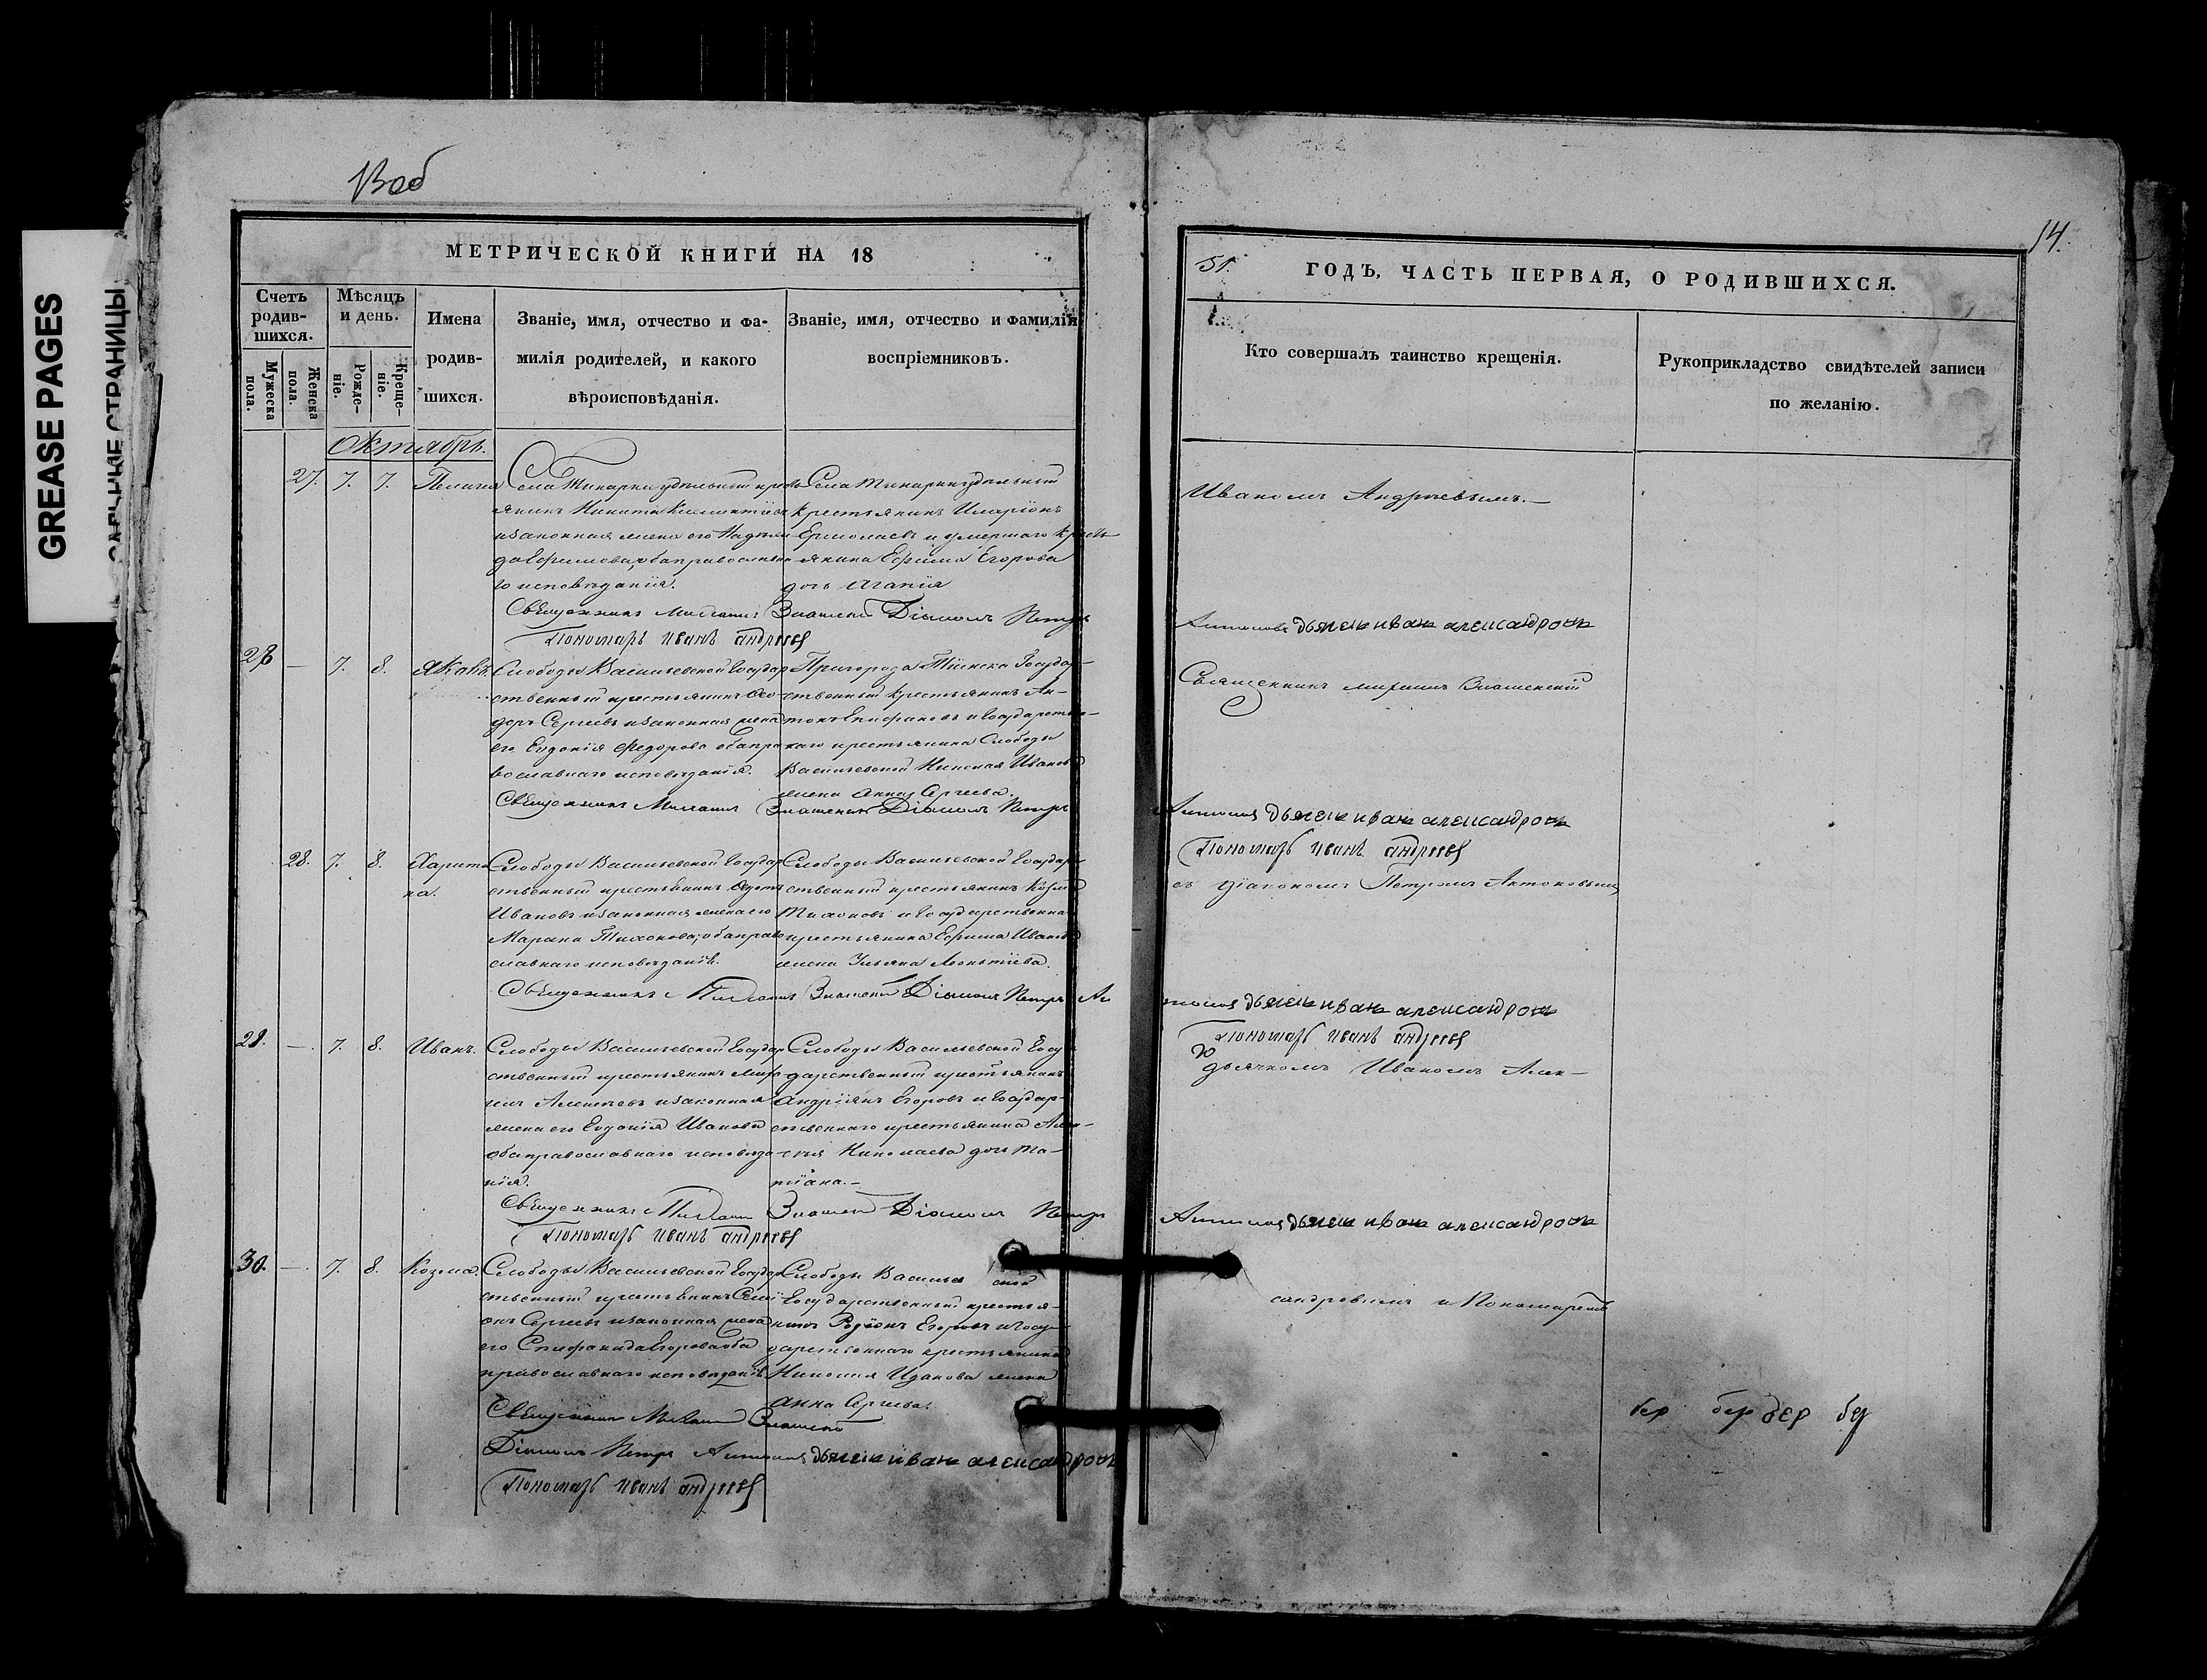 GREASE PAGES
САЛЬНЫЕ СТРАНИЦЫ
14.
МЕТРИЧЕСКОЙ КНИГИ НА 18
51. ГОДЪ, ЧАСТЬ ПЕРВАЯ, О РОДИВШИХСЯ.
Счетъ родив-шихся.
Мужеска пола.
Женска пола.
Мѣсяцъ и день.
Рожде-ніе.
Креще-ніе.
Имена
родив-
шихся.
Званіе, имя, отчество и фа-
милія родителей, и какого
вѣроисповѣданія.
Званіе, имя, отчество и фамилія
воспріемниковъ.
Кто совершалъ таинство крещенія.
Рукоприкладство свидѣтелей записи
по желанію.
Октябрь.
27. 7. 7. Пелагія
Села Тинарки удѣльный кресть
янинъ Никита
и законная жена его Надеж
да Ефимова, оба православна
го исповѣданія.
Села Тинарки удѣльный
крестьянинъ Иларіонъ
Ермолаевъ и умершаго кресть
янина Ефима Егорова
дочь Агапія
Иваномъ Андреевымъ.—
Священникъ Діаконъ Петръ
Антоновъ дьячекъ иванъ александровъ
Пономарь иванъ андреевъ
28 — 7. 8. Яковъ.
Слободы Васильевской Государ
ственный крестьянинъ Ѳео
доръ Сергеевъ и законная жена
его Евдокія Федорова оба пра
вославнаго исповѣданія.
Пригорода Тіинска Государ-
ственный крестьянинъ Ан-
тонъ Епифановъ и Государствен-
наго крестьянина Слободы
Васильевской Николая Иванова
жена Анна Сергеева.
Священникъ
Священникъ Діаконъ Петръ
Антоновъ дьячекъ иванъ александровъ
Пономарь иванъ андреевъ
28. 7. 8. Харити
на.
Слободы Васильевской Государ
ственный крестьянинъ
Ивановъ и законная жена его
Марина Тихонова, оба право
славнаго исповѣданія.
Слободы Васильевской Государ
ственный крестьянинъ Козма
Тихоновъ и Государственна
крестьянина Ефима Иванова
жена Ульяна Леонтіева.
съ діакономъ Петромъ Антоновымъ,
Священникъ Діаконъ Петръ Ан
тоновъ дьячекъ иванъ александровъ
Пономарь иванъ андреевъ
29. — 7. 8. Иванъ.
Слободы Васильевской Государ
ственный крестьянинъ
Алексеевъ и законная
жена его Евдокія Иванова
оба православнаго исповѣда
нія.
Слободы Васильевской Госу
дарственный крестьянинъ
Андріянъ Егоровъ и Государ-
ственнаго крестьянина Алек-
сея Николаева дочь Та-
тіана.—
дьячкомъ Иваномъ Алек-
Священникъ Діаконъ Петръ
Антоновъ дьячекъ иванъ александровъ
Пономарь иванъ андреевъ
30. — 7. 8. Козма.
Слободы Васильевской Государ
ственный крестьянинъ Семі
онъ Сергеевъ и законная жена
его Епифанида Егорова оба
православнаго исповѣданія
Слободы Васильев ской
Государственный крестья-
нинъ Родіонъ Егоровъ и Госу-
дарственнаго крестьянина
Николая Иванова жена
Анна Сергеева.
сандровымъ и Пономаремъ
Священникъ
Діаконъ Петръ Антоновъ дьячекъ иванъ александровъ
Пономарь иванъ андреевъ